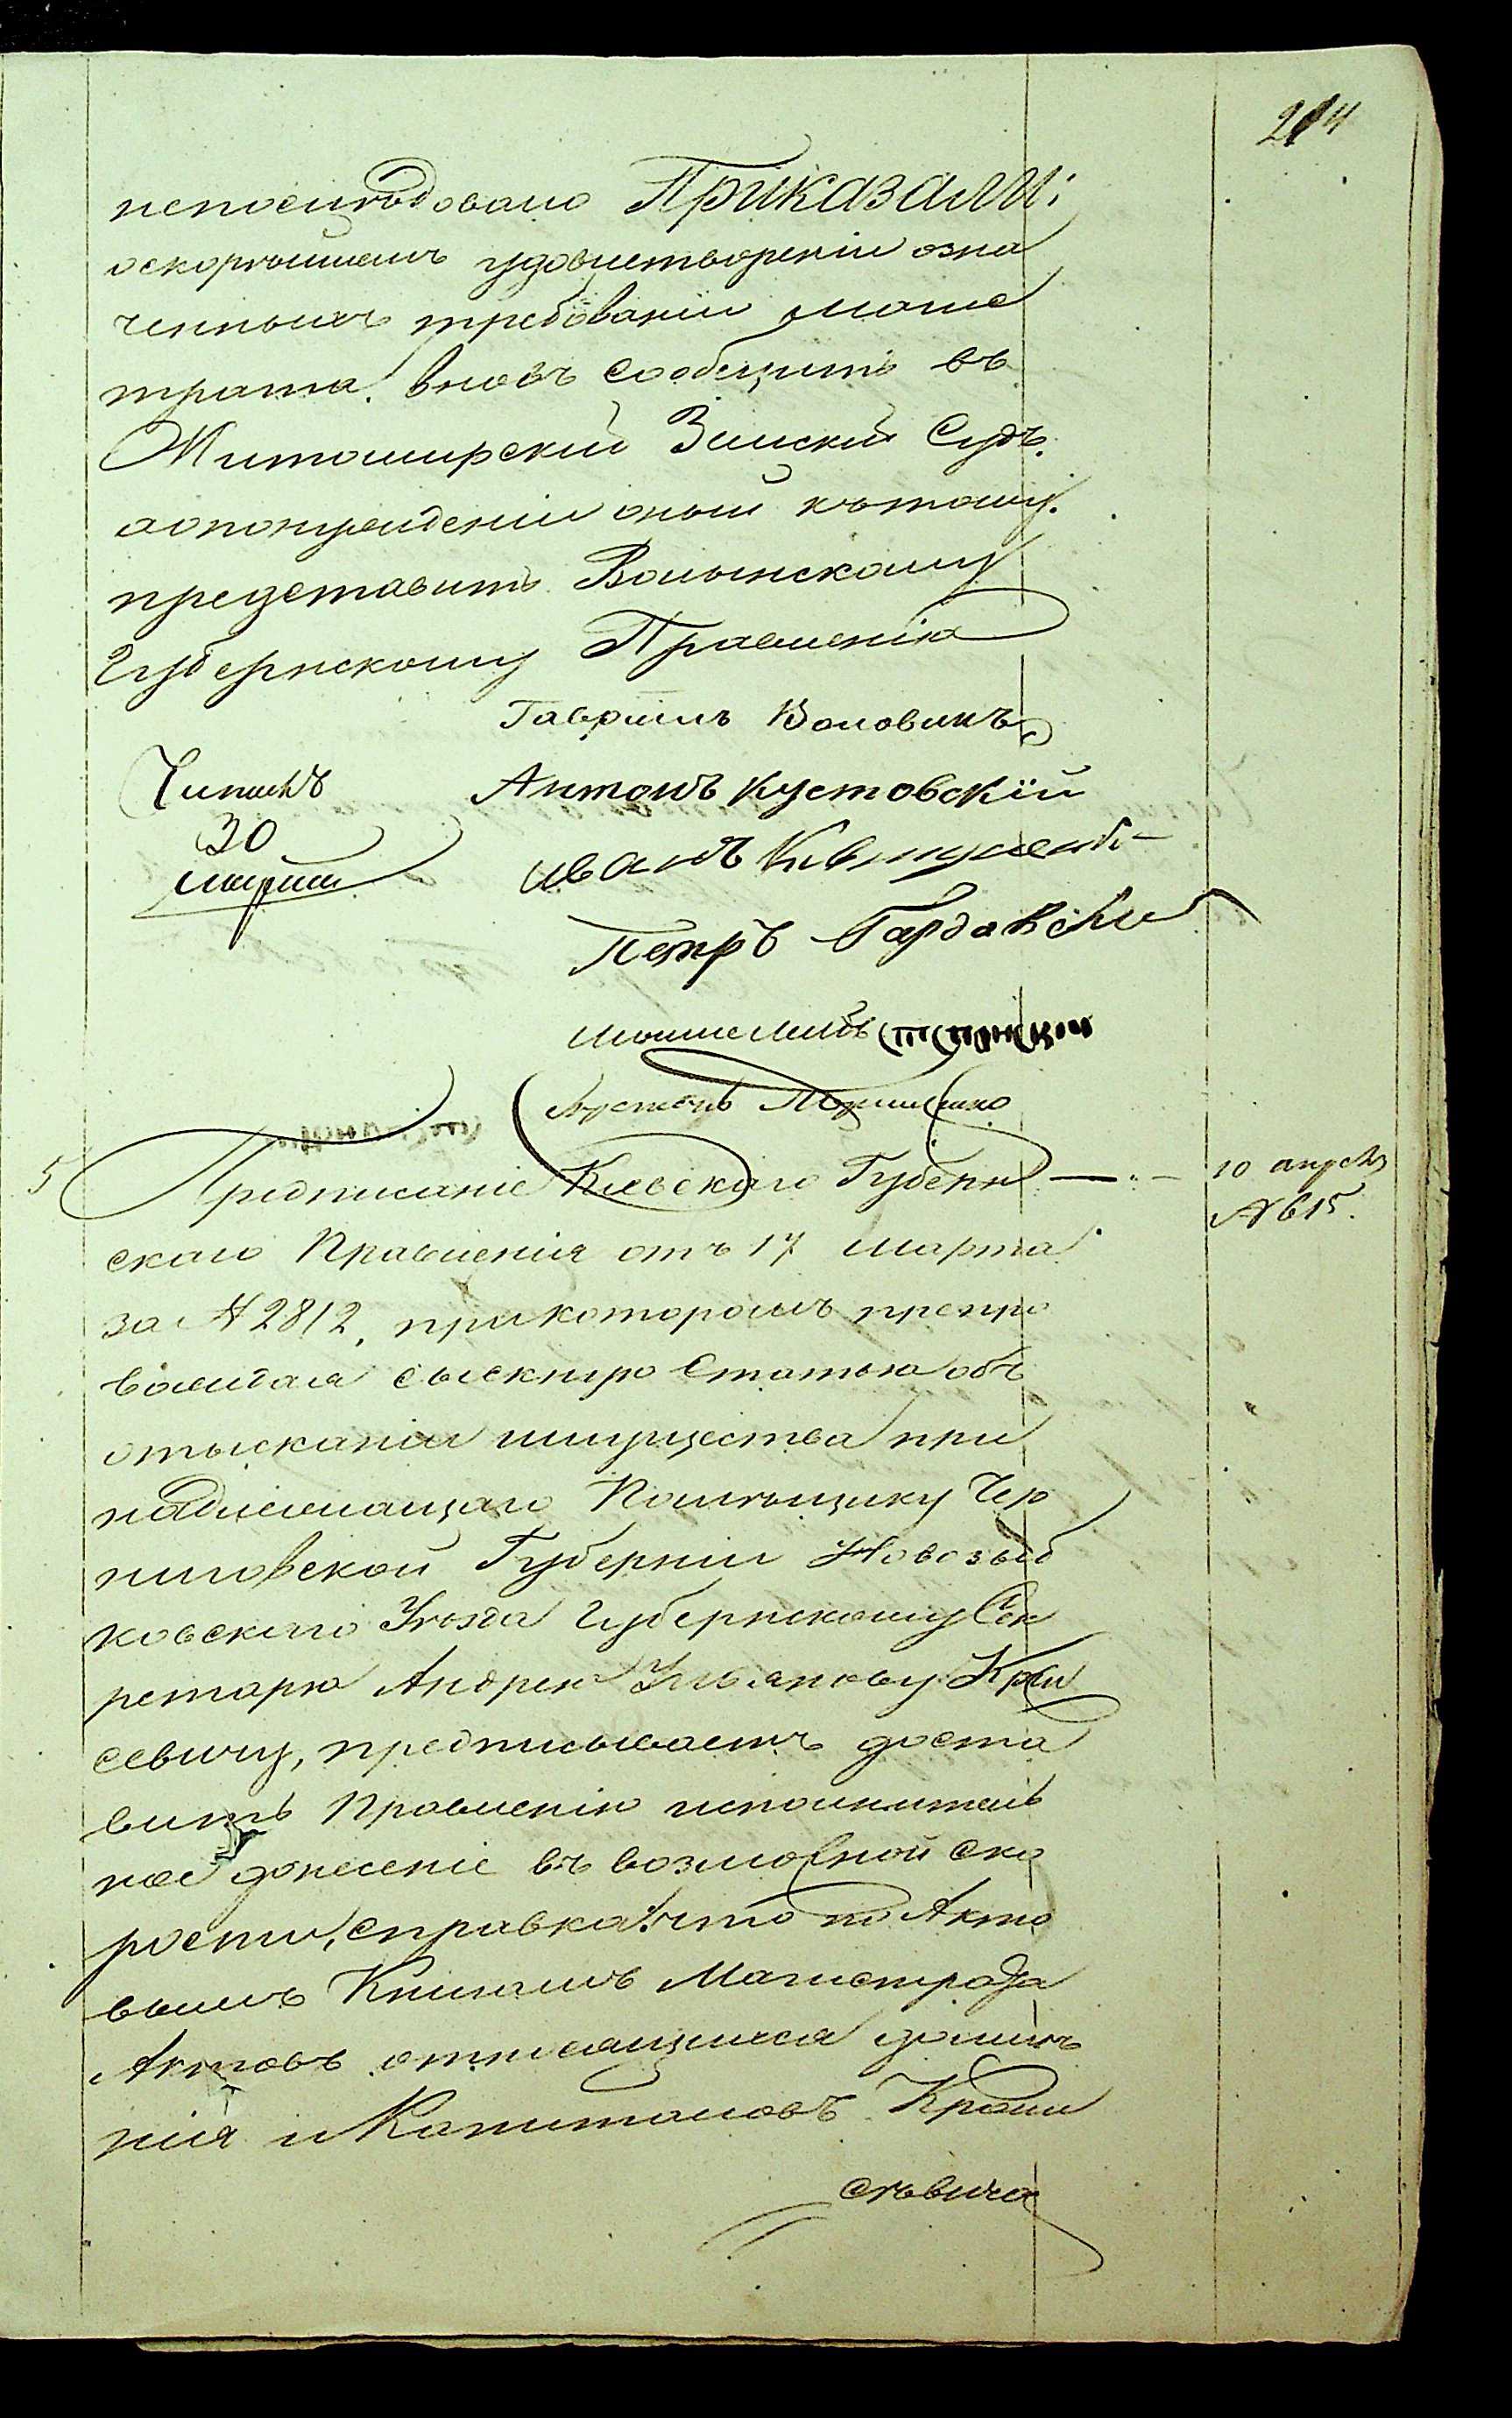 214
непослѣдовало Приказали:
оскорѣйшемъ удовлетвореніи озна
ченныхъ требованій маги
трата. вновь сообщить въ
Житомирскій Земскій Судъ.
аопонужденіи оный кътому.
представить Волынскому
Губернскому Правленію
Гавріилъ Воловикъ
Антонъ Кустовскій
Иванъ
Петръ Гардавскій
5 Предписаніе Кіевскаго Губерн
10 апрель
№ 615.
скаго Правленія отъ 17 марта
за № 2812, прикоторомъ препро
вождая сыскную Статью объ
отысканіи имущества при
надлежащаго Помѣщику Чер
ниговской Губерніи Новозыб
ковскаго Уѣзда Губернскому Сек
ретарю Андрею Ульянову Кры
севичу, предписываетъ доста
вить Правленію исполнитель
ное донесеніе въ возможной ско
рости, справка: что по Акто
вымъ Книгамъ Магистрата
Актовъ относящихся доимѣ
нія и Капиталовъ Крыи
сѣвича